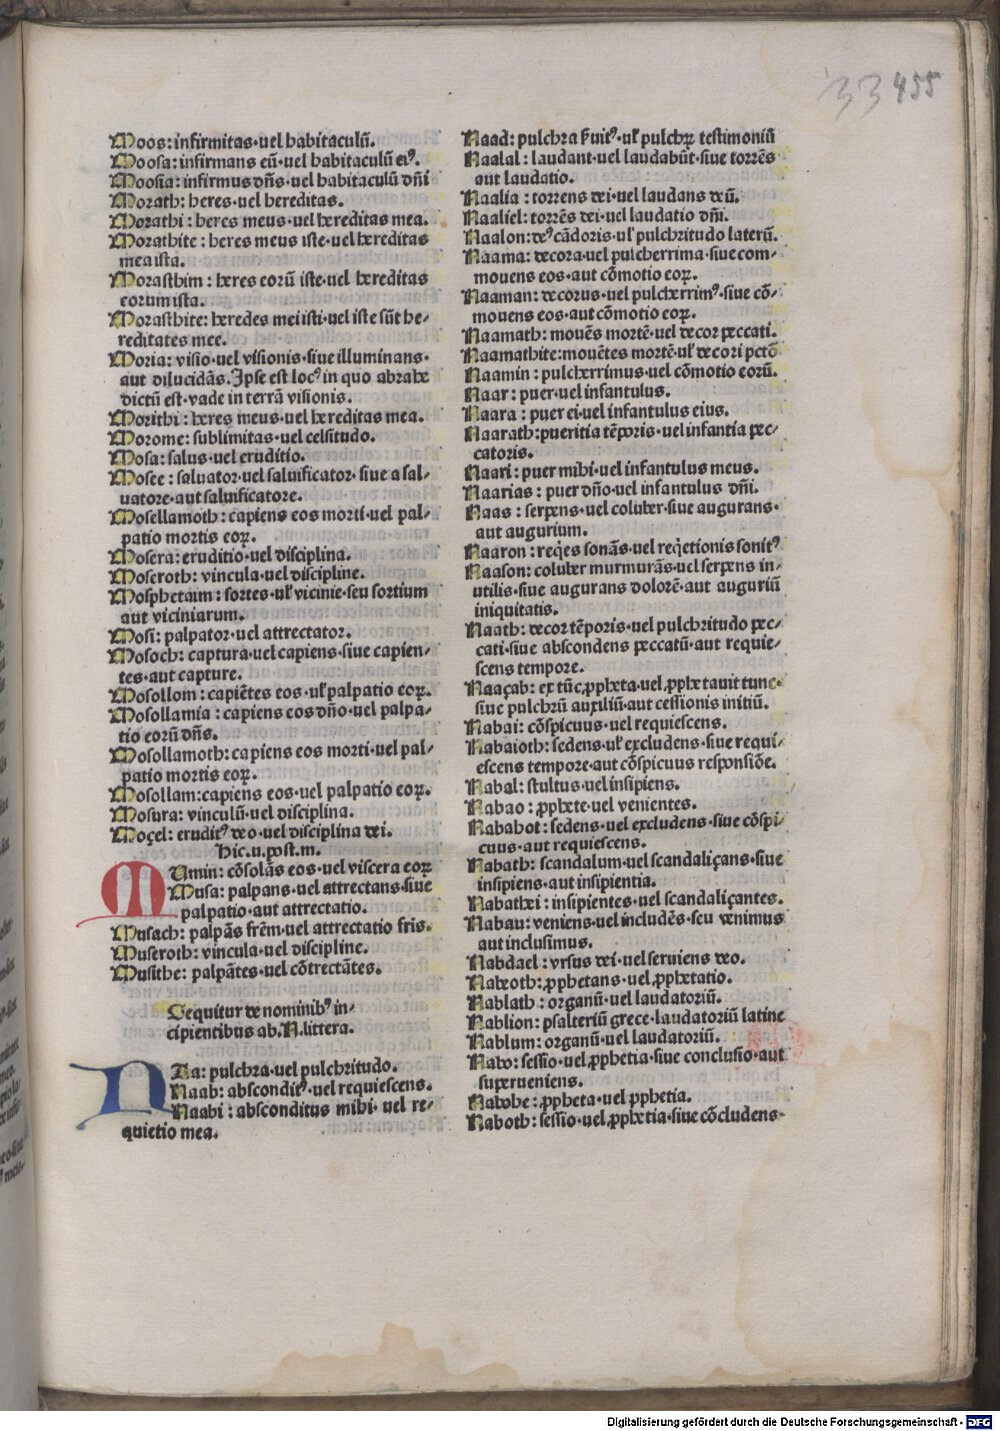 33 455
Moos: infirmitas·uel habitaculū.
Moosa: infirmans eū·uel habitaculū eiꝰ.
Moosia: infirmus dn̄s·uel habitaculū dn̄i
Morath: heres·uel hereditas.
Morathi: heres meus·uel hereditas mea.
Morathite: heres meus iste·uel hereditas
mea ista.
Morasthim: heres eorū iste·uel hereditas
eorum ista.
Morasthite: heredes mei isti·uel iste sūt he⸗
reditates mee.
Moria: visio·uel visionis·siue illuminans·
aut dilucidās. Ipse est locꝰ in quo abrahe
dictū est·vade in terrā visionis.
Morithi: heres meus·uel hereditas mea.
Morome: sublimitas·uel celsitudo.
Mosa: salus·uel eruditio.
Mosee: saluator·uel saluificator·siue a sal⸗
uatore·aut saluificatore.
Mosellamoth: capiens eos morti·uel pal⸗
patio mortis eoꝝ.
Mosera: eruditio·uel disciplina.
Moseroth: vincula·uel discipline.
Mosphetaim: sortes·ul̄ vicinie·seu sortium
aut viciniarum.
Mosi: palpator·uel attrectator.
Mosoch: captura·uel capiens·siue capien⸗
tes·aut capture.
Mosollom: capiētes eos·ul̄ palpatio eoꝝ.
Mosollamia: capiens eos dn̄o·uel palpa⸗
tio eorū dn̄s.
Mosollamoth: capiens eos morti·uel pal⸗
patio mortis eoꝝ.
Mosollam: capiens eos·uel palpatio eoꝝ.
Mosura: vinculū·uel disciplina.
Moçel: eruditꝰ deo·uel disciplina dei.
Hic.u.post.m.
MUmin: cōsolās eos·uel viscera eoꝝ
Musa: palpans·uel attrectans·siue
palpatio·aut attrectatio.
Musach: palpās fr̄em·uel attrectatio fris.
Museroth: vincula·uel discipline.
Musithe: palpātes·uel cōtrectātes.
Sequitur de nominibꝰ in⸗
cipientibus ab.N.littera.
NAa: pulchra·uel pulchritudo.
Naab: absconditꝰ·uel requiescens.
Naabi: absconditus mihi·uel re⸗
quietio mea.
Naad: pulchra f̄uitꝰ·ul̄ pulchꝝ testimoniū
Naalal: laudant·uel laudabūt·siue torrēs
aut laudatio.
Naalia: torrens dei·uel laudans deū.
Naaliel: torrēs dei·uel laudatio dn̄i.
Naalon: deꝰ cādoris·ul̄ pulchritudo laterū.
Naama: decora·uel pulcherrima·siue com⸗
mouens eos·aut cōmotio eoꝝ.
Naaman: decorus·uel pulcherrimꝰ·siue cō⸗
mouens eos·aut cōmotio eoꝝ.
Naamath: mouēs mortē·uel decor peccati.
Naamathite: mouētes mortē·ul̄ decori pctō
Naamin: pulcherrimus·uel cōmotio eorū.
Naar: puer·uel infantulus.
Naara: puer ei·uel infantulus eius.
Naarath: pueritia tēporis·uel infantia pec⸗
catoris.
Naari: puer mihi·uel infantulus meus.
Naarias: puer dn̄o·uel infantulus dn̄i.
Naas: serpens·uel coluber·siue augurans·
aut augurium.
Naaron: reqͥes sonās·uel reqͥetionis sonitꝰ
Naason: coluber murmurās·uel serpens in⸗
utilis·siue augurans dolorē·aut auguriū
iniquitatis.
Naath: decor tēporis·uel pulchritudo pec⸗
cati·siue abscondens peccatū·aut requie⸗
scens tempore.
Naaçab: ex tūc ꝓpheta·uel ꝓphetauit tunc·
siue pulchrū auxiliū·aut cessionis initiū.
Nabai: cōspicuus·uel requiescens.
Nabaioth: sedens·ul̄ excludens·siue requi⸗
escens tempore·aut cōspicuus responsiōe.
Nabal: stultus·uel insipiens.
Nabao: ꝓphete·uel venientes.
Nababot: sedens·uel excludens·siue cōspi⸗
cuus·aut requiescens.
Nabath: scandalum·uel scandaliçans·siue
insipiens·aut insipientia.
Nabathei: insipientes·uel scandaliçantes.
Nabau: veniens·uel includēs·seu venimus
aut inclusimus.
Nabdael: vrsus dei·uel seruiens deo.
Nabeoth: ꝓphetans·uel ꝓphetatio.
Nablath: organū·uel laudatoriū.
Nablion: psalteriū grece·laudatoriū latine
Nablum: organū·uel laudatoriū.
Nabo: sessio·uel ꝓphetia·siue conclusio·aut
superueniens.
Nabohe: ꝓpheta·uel ꝓphetia.
Naboth: sessio·uel ꝓphetia·siue cōcludens·
Digitalisierung gefördert durch die Deutsche Forschungsgemeinschaft - DFG